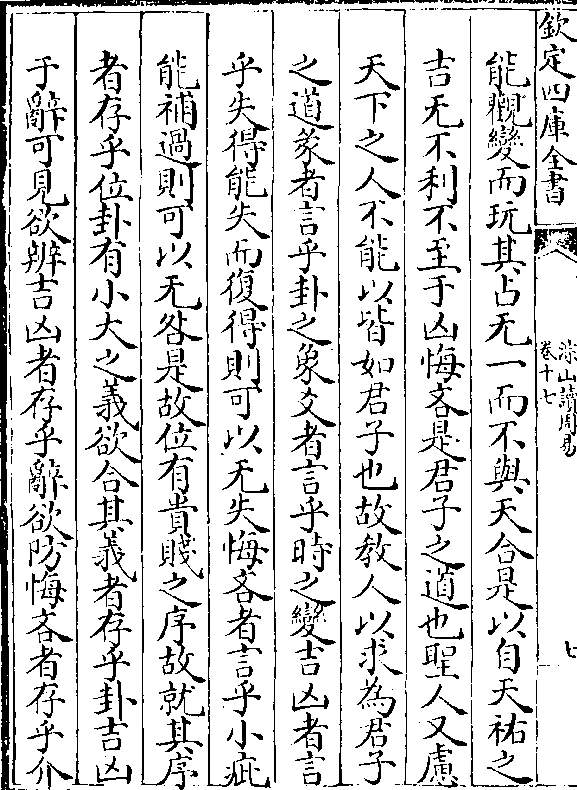 欽定四庫全書
淙山讀周易
卷十七
七
能觀變而玩其占无一而不與天合是以自天祐之
吉无不利不至于凶悔吝是君子之道也聖人又慮
天下之人不能以皆如君子也故教人以求為君子
之道彖者言乎卦之象爻者言乎時之變吉凶者言
乎失得能失而復得則可以无失悔吝者言乎小疵
能補過則可以无咎是故位有貴賤之序故就其序
者存乎位卦有小大之義欲合其義者存乎卦吉凶
于辭可見欲辨吉凶者存乎辭欲防悔吝者存乎介